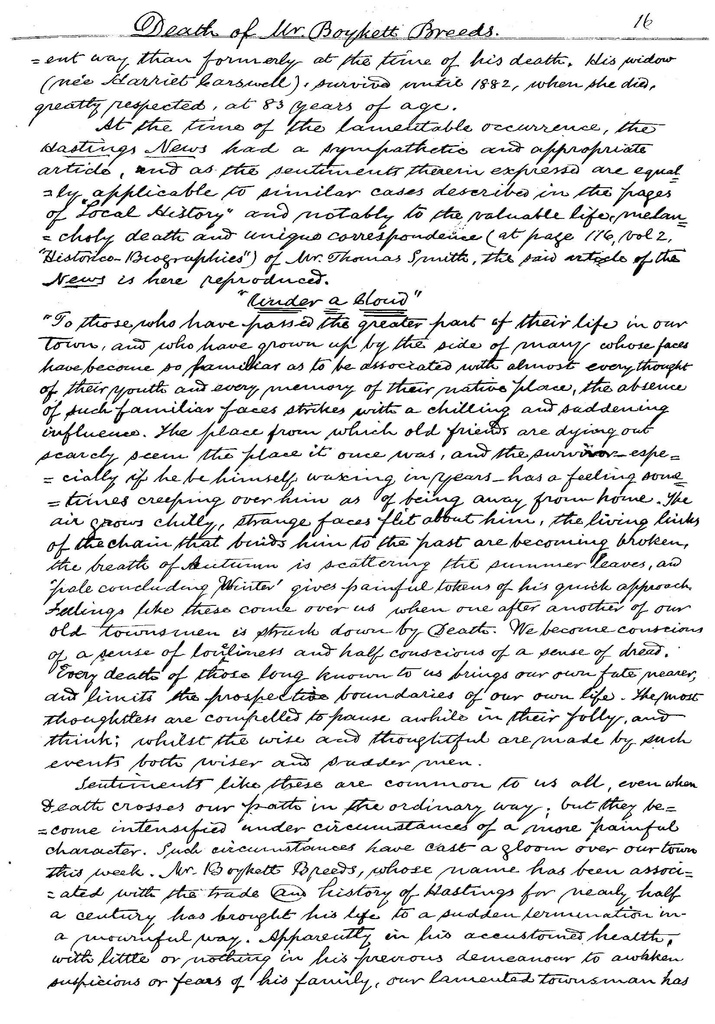 Death of Mr. Boykett Breeds. 16
=ent way than formerly at the time of his death. His widow
(née Harriet Carswell), survived until 1882, when she died,
greatly respected, at 83 years of age.
At the time of the lamentable occurrence, the
Hastings News had a sympathetic and appropriate
article, and as the sentiments therein expressed are equal=
=ly applicable to similar cases described in the pages
of "Local History" and notably to the valuable life, melan=
=choly death and unique correspondence (at page 116, vol 2,
"Historico-Biographies") of Mr. Thomas Smith, the said article of the
News is here reproduced.
"Under a Cloud"
"To those who have passed the greater part of their life in our
town, and who have grown up by the side of many whose faces
have become so familiar as to be associated with almost every thought
of their youth and every memory of their native place, the absence
of such familiar faces strikes with a chilling and saddening
influence. The place from which old friends are dying out
scarcly seem the place it once was, and the survivor–espe=
=cially if he be himself waxing in years–has a feeling some=
=times creeping over him as of being away from home. The
air grows chilly, strange faces flit about him, the living links
of the chain that binds him to the past are becoming broken,
the breath of Autumn is scattering the summer leaves, and
'pale concluding Winter' gives painful tokens of his quick approach.
Feelings like these come over us when one after another of our
old townsmen is struck down by Death. We become conscious
of a sense of loneliness and half conscious of a sense of dread.
Every death of those long known to us brings our own fate nearer,
and limits the prospective boundaries of our own life. The most
thoughtless are compelled to pause awhile in their folly, and
think; whilst the wise and thoughtful are made by such
events both wiser and sadder men.
Sentiments like these are common to us all, even when
Death crosses our path in the ordinary way; but they be=
=come intensified under circumstances of a more painful
character. Such circumstances have cast a gloom over our town
this week. Mr. Boykett Breeds, whose name has been associ=
=ated with the trade and history of Hastings for nearly half
a century has brought his life to a sudden termination in
a mournful way. Apparently in his accustomed health,
with little or nothing in his previous demeanour to awaken
suspicions or fears of his family, our lamented townsman has